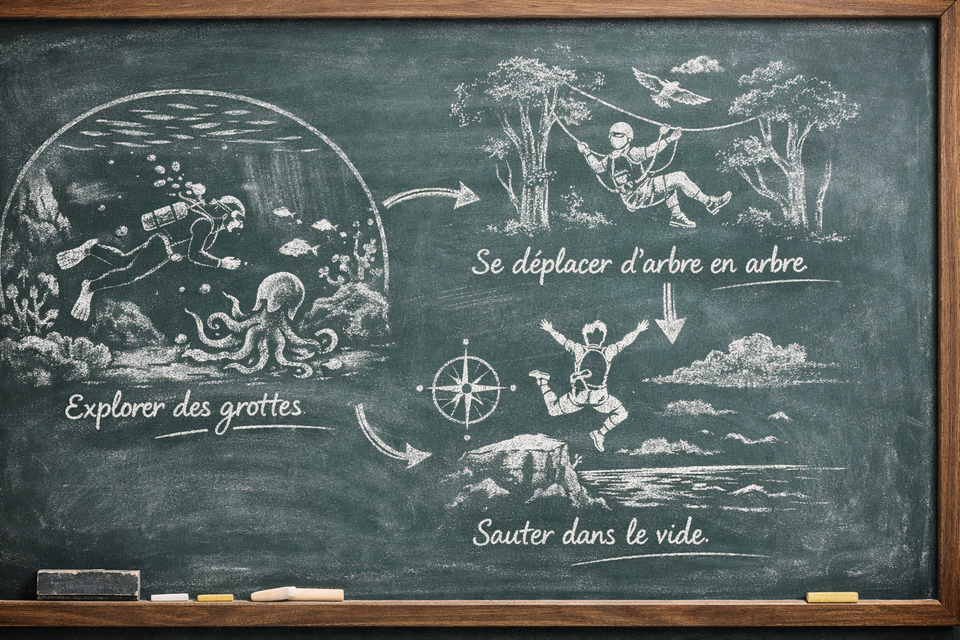 Explorer des grottes
Se déplacer d'arbre en arbre.
Sauter dans le vide.